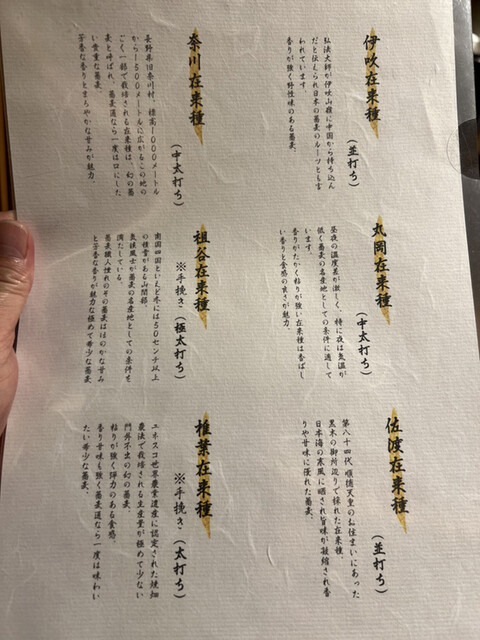 伊吹在来種
(並打ち)
弘法大師が伊吹山麓に中国から持ち込ん
だと伝えられ日本の蕎麦のルーツとも言
われています。
香りが強く野性味のある蕎麦。
奈川在来種
(中太打ち)
長野県旧奈川村、標高1000メートル
から1500メートルに広がるこの地の
ごく一部で栽培される在来種は、幻の蕎
麦と呼ばれ、蕎麦通なら一度は口にした
い貴重な蕎麦。
芳香な香りとまろやかな甘みが魅力。
丸岡在来種
(中太打ち)
昼夜の温度差が激しく、特に夜は気温が
低く蕎麦の名産地としての条件に適して
います。
香りがたかく粘りが強い在来種は香ばし
い香りと食感の良さが魅力。
祖谷在来種
※手挽き (極太打ち)
南国四国といえど冬には50センチ以上
の積雪がある山間部、
気候風土が蕎麦の名産地としての条件を
満たしている。
蕎麦職人憧れのその蕎麦はほのかな甘み
と芳香な香りが魅力な極めて希少な蕎麦
佐渡在来種
(並打ち)
第八十四代 順徳天皇のお住まいにあった
黒木の御所辺りで採れた在来種、
日本海の寒風に晒され旨味が凝縮され香
りや甘味に優れた蕎麦。
椎葉在来種
※手挽き (太打ち)
ユネスコ世界農業遺産に認定された焼畑
農法で栽培される生産量が極めて少ない
門外不出の幻の蕎麦。
粘りが強く弾力のある食感。
香り甘味も強く蕎麦通なら一度は味わい
たい希少な蕎麦。